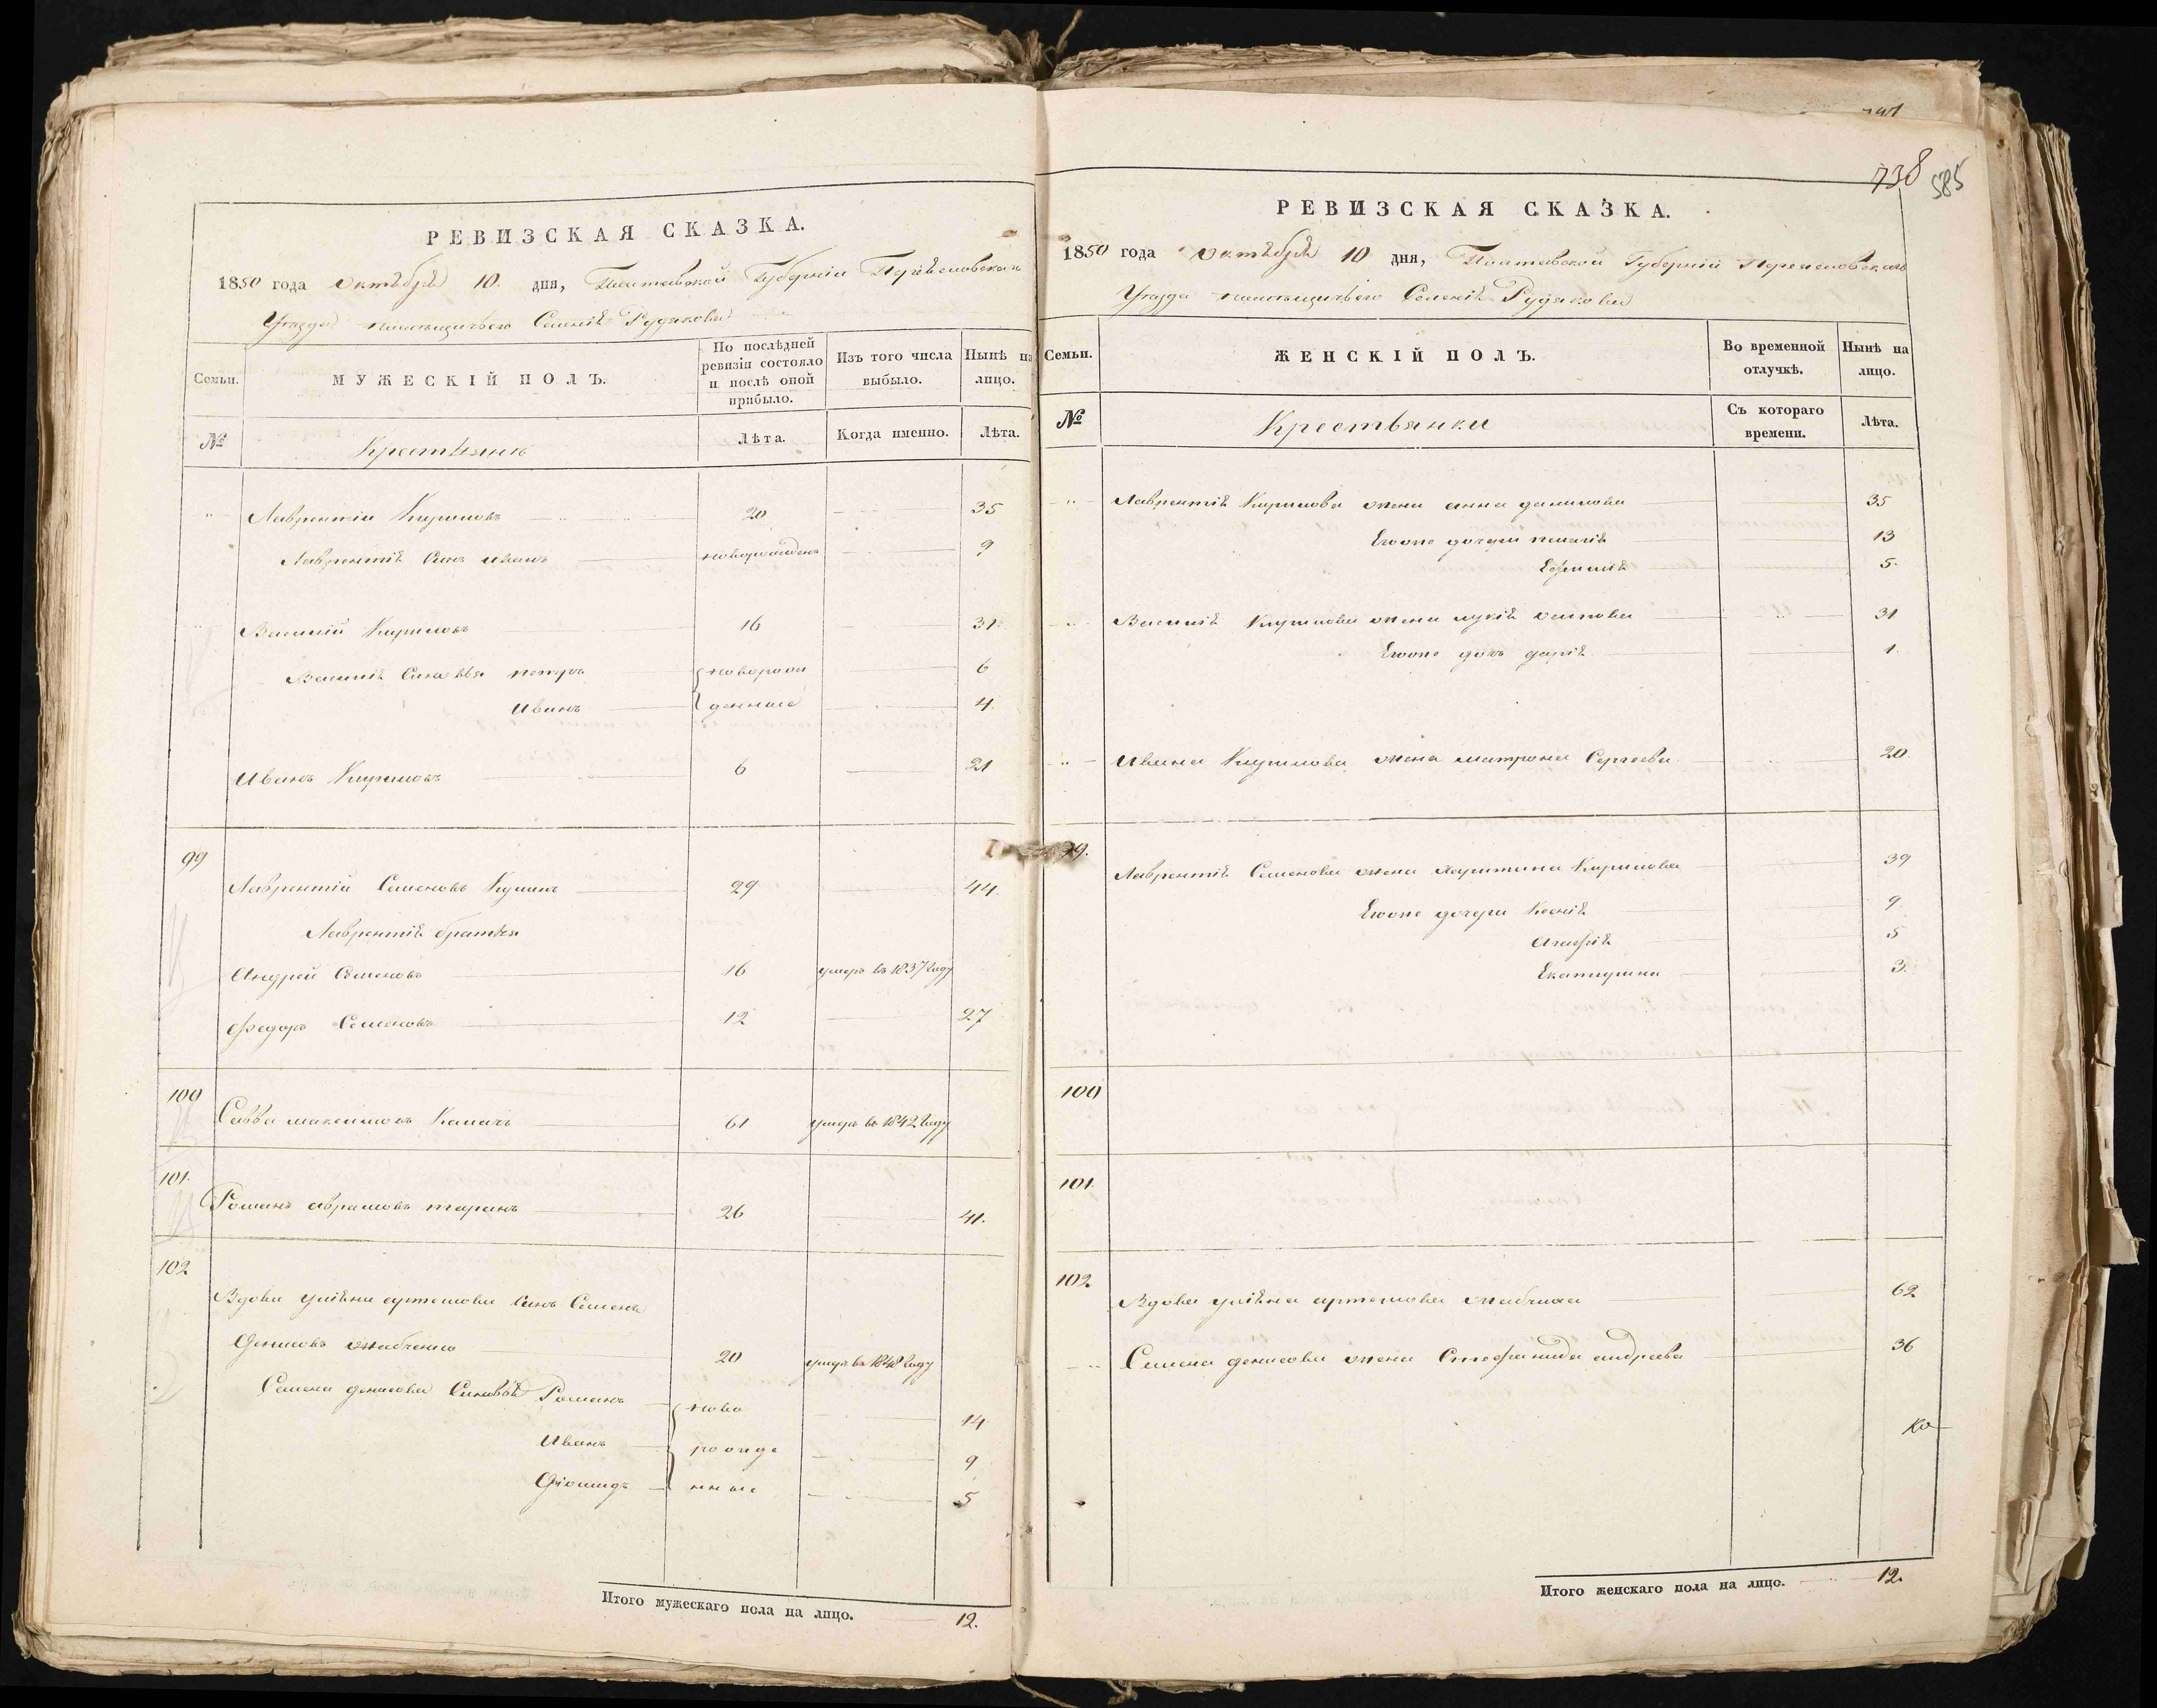 РЕВИЗСКАЯ СКАЗКА.
1850 года октября 10. дня, Полтавской Губерніи Переяславскаго
Уезда помещичьего Селенія Рудяkова
Семьи.
МУЖЕСКІЙ ПОЛЪ.
По послѣдней ревизіи состояло и послѣ оной прибыло.
Изъ того числа выбыло.
Нынѣ на лицо.
№
Крестьяне
Лѣта.
Когда именно.
Лѣта.
Лаврентій Кириловъ 20 35
Лаврентія Сынъ иванъ новорожденъ 9
Василій Кириловъ 16 31
Василія Сыновья петръ новорож 6
Иванъ денные 4.
Иванъ Кириловъ 6 21
99
Лаврентій Семеновъ 29 44.
Лаврентія братья
Андрей Семеновъ 16 умеръ въ 1837 году
Федоръ Семеновъ 12 27
100
Савва максимовъ 61 умеръ въ 1842 году
101.
Романъ аврамовъ таранъ 26 41.
102
Вдовы уліяны артемовы Сынъ Семенъ
Денисовъ жабченко 20 умеръ въ 1848 году
Семена денисова Сыновья Романъ ново 14
Иванъ рожде 9
Діомидъ нные 5
Итого мужескаго пола на лицо. 12.
738
585
РЕВИЗСКАЯ СКАЗКА.
1850 года октября 10 дня, Полтавской Губерніи Переяславскаго
Уезда помещичьего Селенія Рудякова
Семьи.
ЖЕНСКІЙ ПОЛЪ.
Во временной отлучкѣ.
Нынѣ на лицо.
№
Крестьянки
Съ котораго времени.
Лѣта.
Лаврентія Кирилова жена анна данилова 35
Егоже дочери пелагія 13
Ефимія 5.
Василія Кирилова жена лукія осипова 31
Егоже дочь дарія 1.
Ивана Кирилова жена матрона Сергеева 20.
99.
Лаврентія Семенова жена харитина Кирилова 39
Егоже дочери Ксенія 9.
Агафія 5
Екатирина 3.
100
101.
102
Вдова уліяна артемова жабчиха 62
Семена денисова жена Стефанида андреева 36
Итого женскаго пола на лицо. 12.